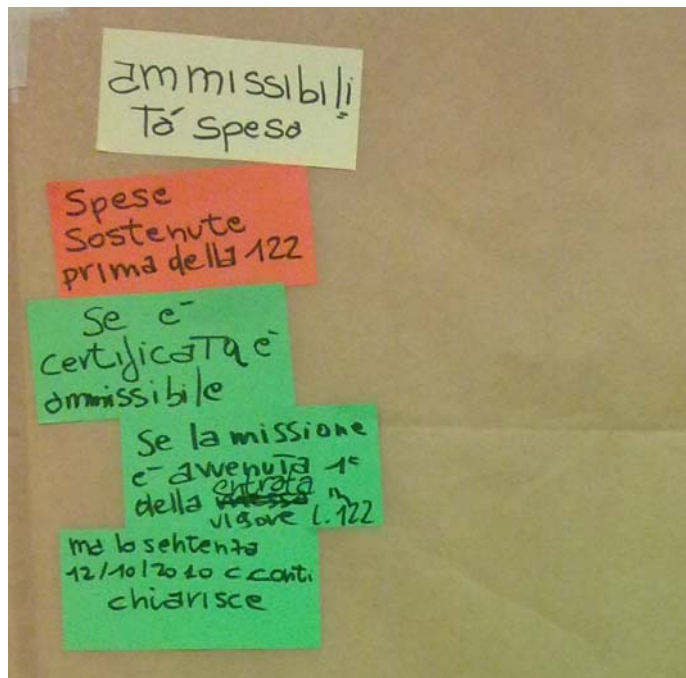 ammissibili
tà spesa
Spese
Sostenute
prima della 122
Se è
certificata è
ammissibile
Se la missione
è avvenuta 1ª
della entrata in
vigore L. 122
ma la sentenza
12/10/2010 C. conti
chiarisce